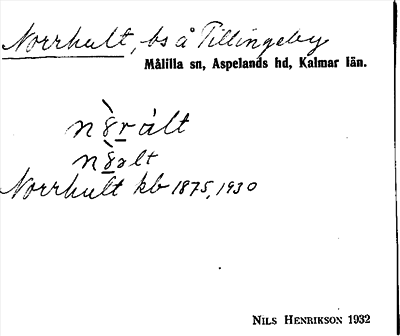 Norrhult, bs å Tillingeby
Målilla sn, Aspelands hd, Kalmar län.
Norrhult kb 1875, 1930
NILS HENRIKSON 1932